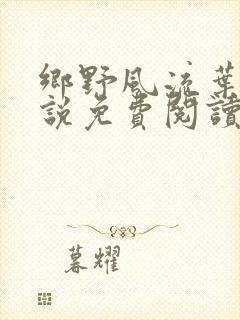 鄉野風流葉
說免費閱讀
暮耀